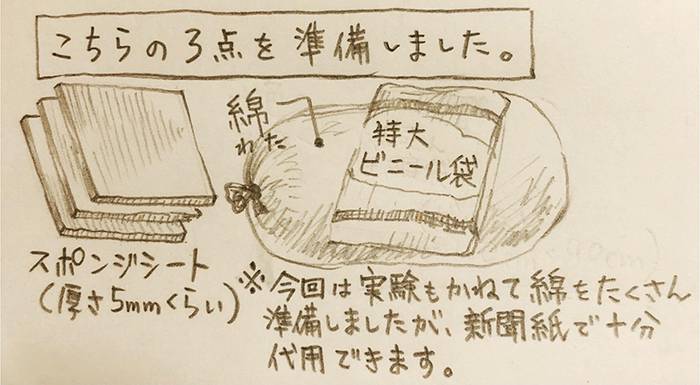 こちらの3点を準備しました。
綿
わた
特大
ビニール袋
スポンジシート
(厚さ5mmくらい)
※今回は実験もかねて綿をたくさん
準備しましたが、新聞紙で十分
代用できます。